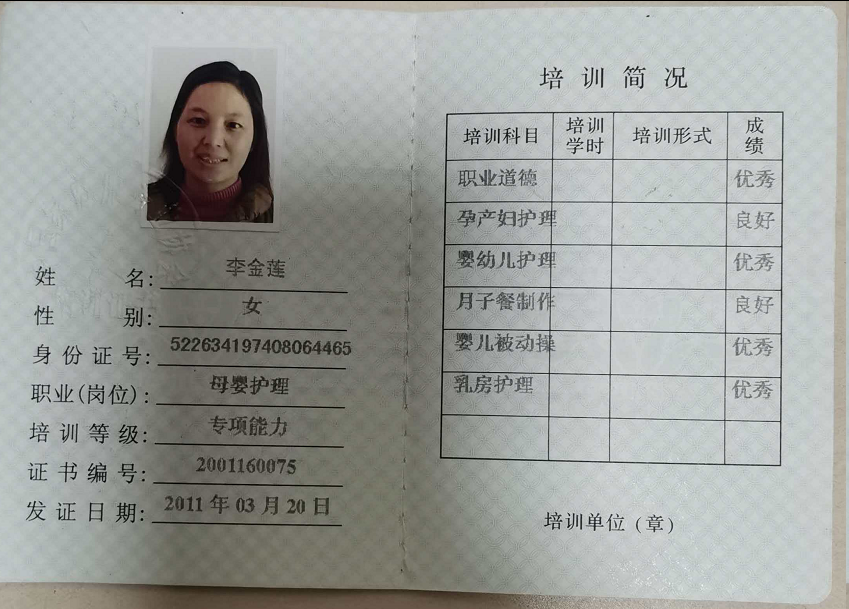 姓名：李金莲
性别：女
身份证号：522634197408064465
职业(岗位)：母婴护理
培训等级：专项能力
证书编号：2001160075
发证日期：2011年03月20日
培训简况
培训科目 培训学时 培训形式 成绩
职业道德 优秀
孕产妇护理 良好
婴幼儿护理 优秀
月子餐制作 良好
婴儿被动操 优秀
乳房护理 优秀
培训单位（章）